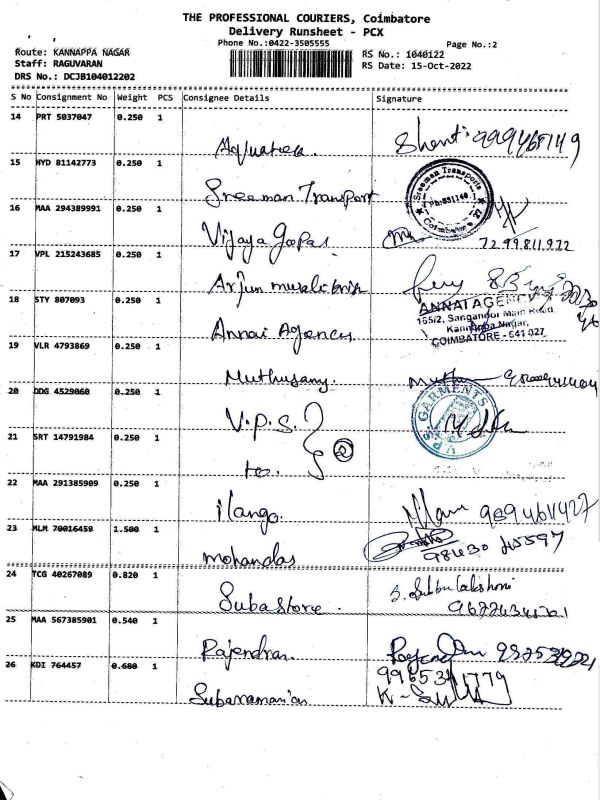 THE PROFESSIONAL COURIERS, Coimbatore
Delivery Runsheet - PCX
Phone No.:0422-3505555
Page No.:2
Route: KANNAPPA NAGAR
Staff: RAGUVARAN
DRS No.: DCJB104012202
RS No.: 1040122
RS Date: 15-Oct-2022
S No Consignment No Weight PCS Consignee Details Signature
14 PRT 5037047 0.250 1
15 HYD 81142773 0.250 1
Sreeman Transport
Sreeman Transports
Coimbatore
16 MAA 294389991 0.250 1
Vijaya Gopal
7299811922
17 VPL 215243685 0.250 1
Arjun
18 STY 807093 0.250 1
Annai Agency
ANNAI AGENCY
165/2, Sanganoor Main Road,
Kannappa Nagar,
COIMBATORE - 641 027.
19 VLR 4793869 0.250 1
Muthusamy.
20 DDG 4529060 0.250 1
V.P.S.
V.P.S. GARMENTS
21 SRT 14791984 0.250 1
to.
22 MAA 291385909 0.250 1
ilango.
23 MLM 70016459 1.500 1
mohandas
24 TCG 40267089 0.820 1
Suba Store.
S. Subbulakshmi
25 MAA 567385901 0.540 1
Rajendran.
26 KDI 764457 0.680 1
Subaramanian